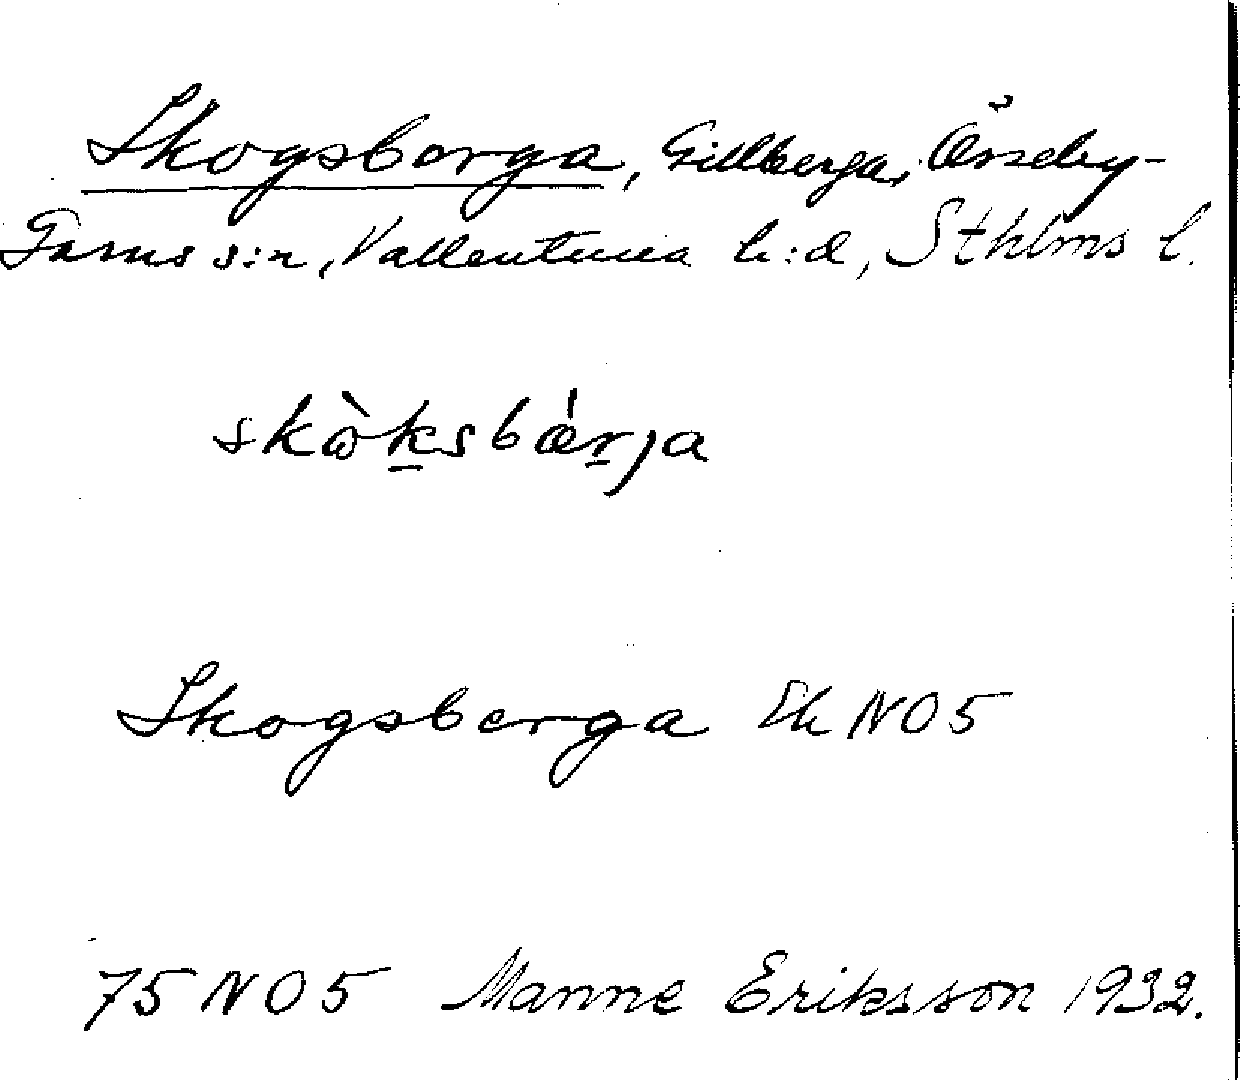 Skogsborga, Gillberga, Össeby-
Garns s:n, Vallentuna h:d, Sthlms l.
skò̀ksbǽrja
Skogsberga Ek NO5
75 NO5 Manne Eriksson 1932.